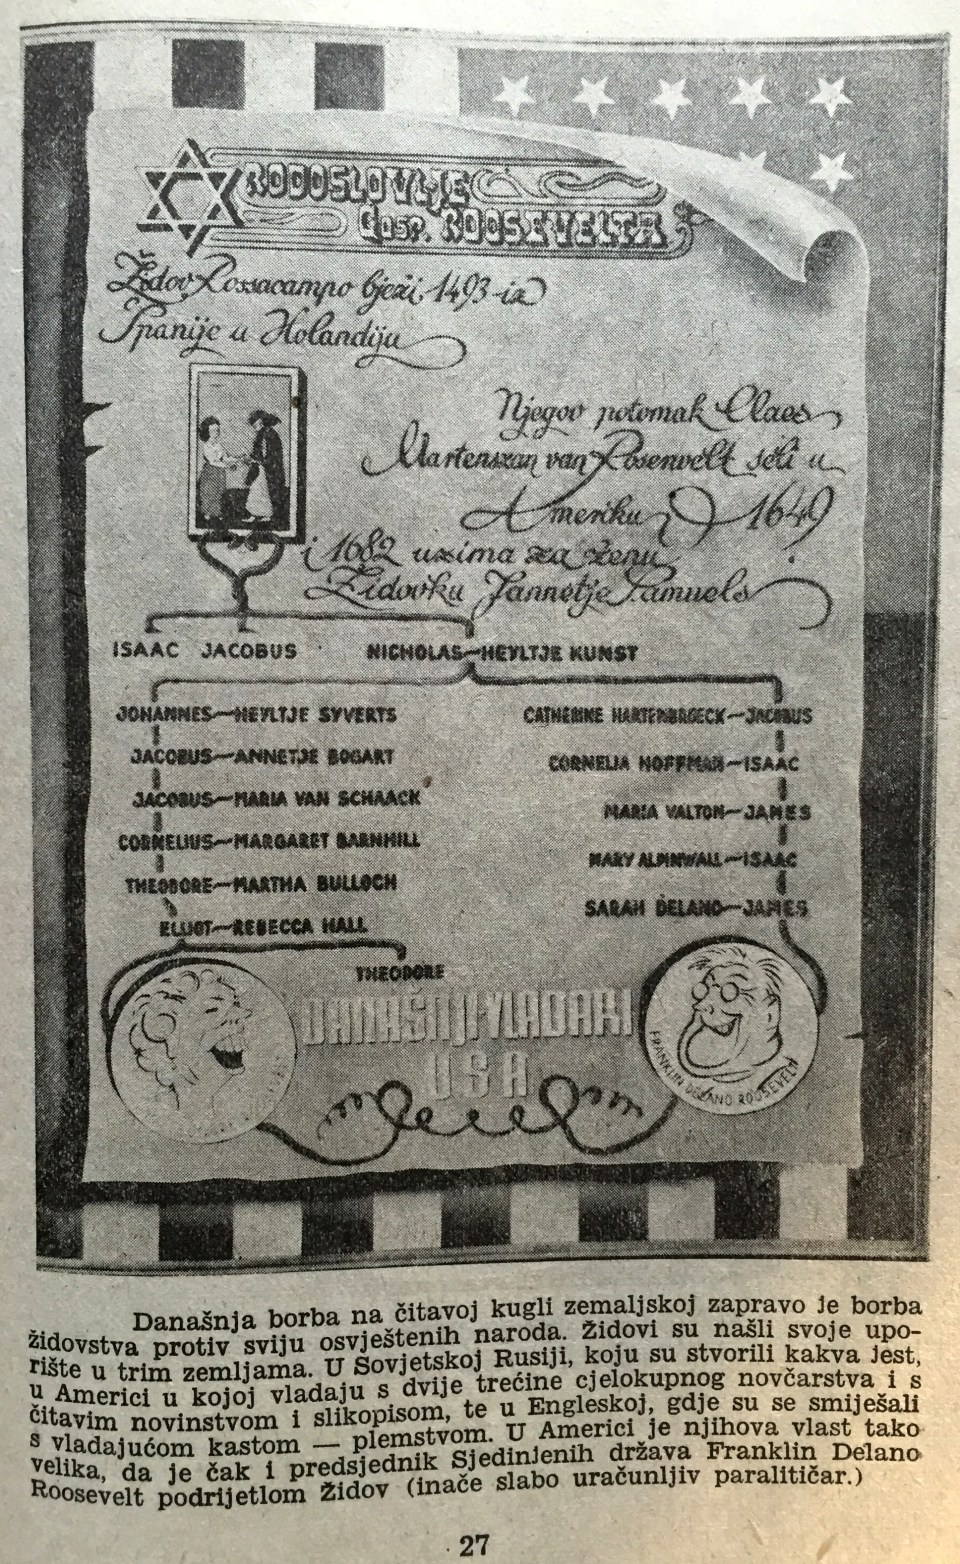 RODOSLOVLJE
Gosp. ROOSEVELTA
Židov Rossacampo bježi 1493 iz
Španije u Holandiju
Njegov potomak Claes
Martenszan van Rosenvelt seli u
Ameriku 1649
i 1682 uzima za ženu
Židovku Jannetje Samuels
ISAAC JACOBUS NICHOLAS—HEYLTJE KUNST
JOHANNES—HEYLTJE SYVERTS
JACOBUS—ANNETJE BOGART
JACOBUS—MARIA VAN SCHAACK
CORNELIUS—MARGARET BARNHILL
THEODORE—MARTHA BULLOCH
ELLIOT—REBECCA HALL
THEODORE
CATHERINE HARTENBROECK—JACOBUS
CORNELIA HOFFMAN—ISAAC
MARIA VALTON—JAMES
MARY ALPINWALL—ISAAC
SARAH DELANO—JAMES
DANAŠNJI VLADARI
USA
FRANKLIN DELANO ROOSEVELT
Današnja borba na čitavoj kugli zemaljskoj zapravo je borba
židovstva protiv sviju osvještenih naroda. Židovi su našli svoje upo-
rište u trim zemljama. U Sovjetskoj Rusiji, koju su stvorili kakva jest,
u Americi u kojoj vladaju s dvije trećine cjelokupnog novčarstva i s
čitavim novinstvom i slikopisom, te u Engleskoj, gdje su se smiješali
s vladajućom kastom — plemstvom. U Americi je njihova vlast tako
velika, da je čak i predsjednik Sjedinjenih država Franklin Delano
Roosevelt podrijetlom Židov (inače slabo uračunljiv paralitičar.)
27